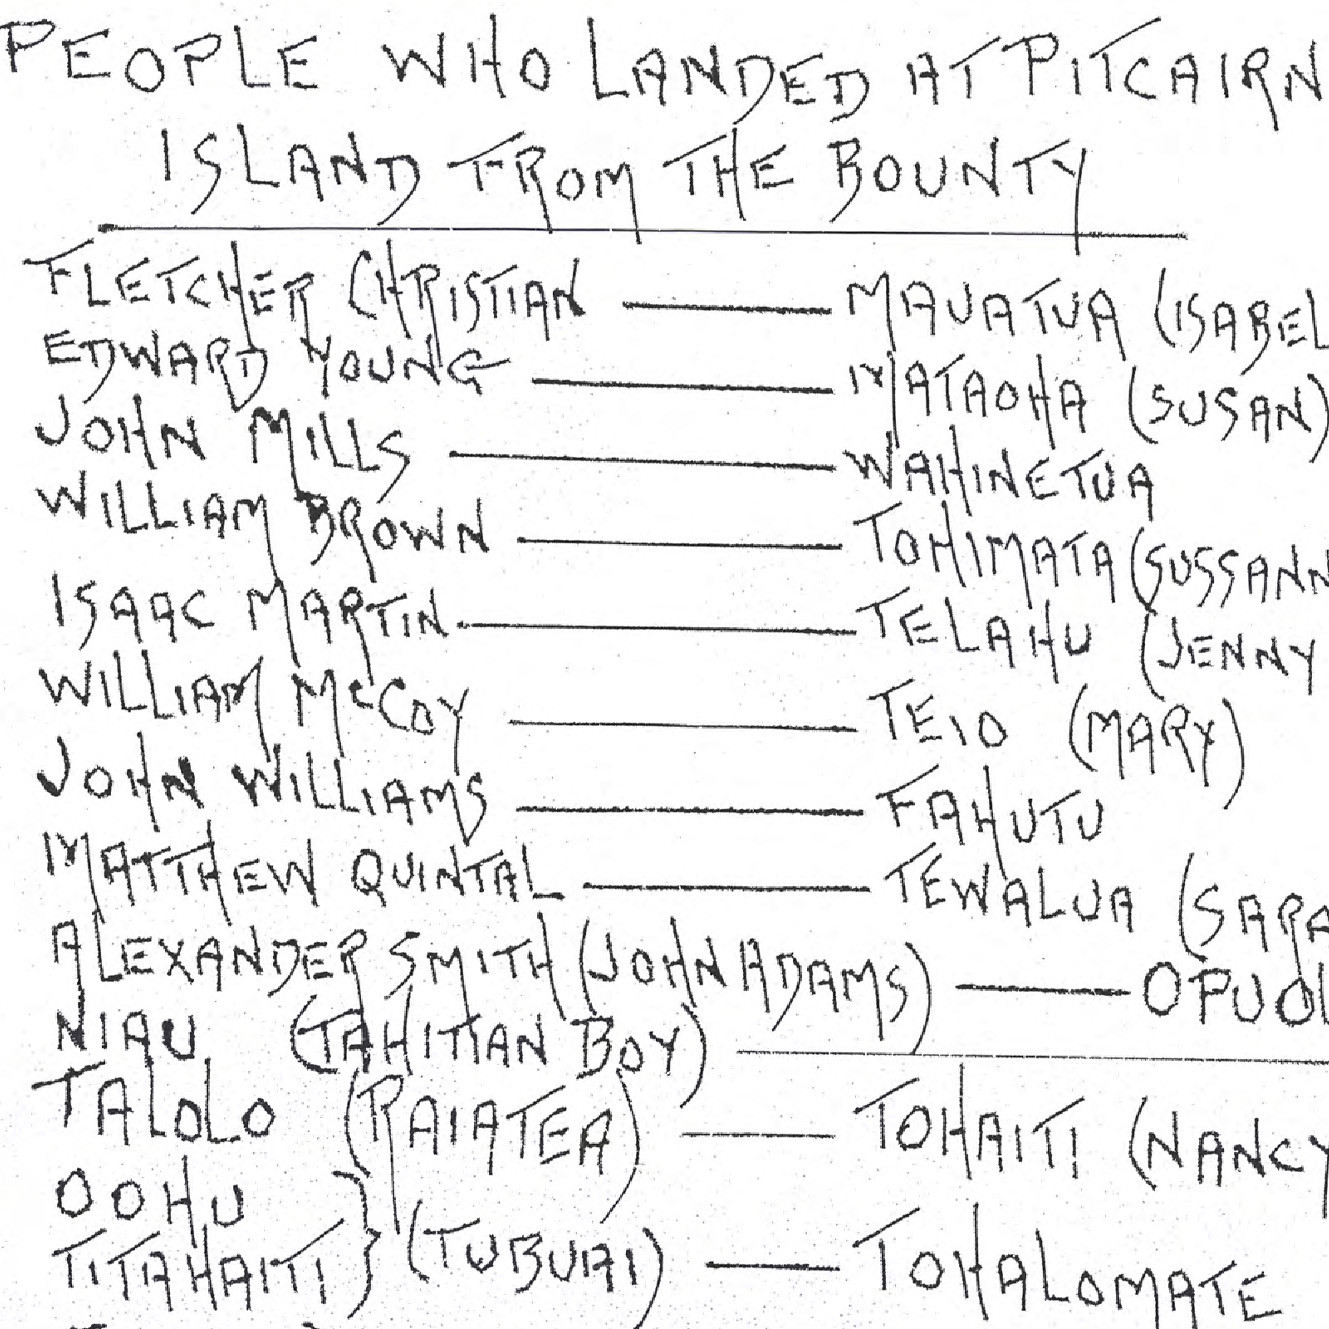 PEOPLE WHO LANDED AT PITCAIRN
ISLAND FROM THE BOUNTY
FLETCHER CHRISTIAN — MAUATUA (ISABEL
EDWARD YOUNG — MATAOHA (SUSAN)
JOHN MILLS — WAHINETUA
WILLIAM BROWN — TOHIMATA (SUSSANN
ISAAC MARTIN — TELAHU (JENNY
WILLIAM McCOY — TEIO (MARY)
JOHN WILLIAMS — FAHUTU
MATTHEW QUINTAL — TEWALUA (SARA
ALEXANDER SMITH (JOHN ADAMS) — OPUOL
NIAU (TAHITIAN BOY) —
TALOLO (RAIATEA) — TOHAITI (NANCY
OOHU
TITAHAITI } (TUBUAI) — TOHALOMATE